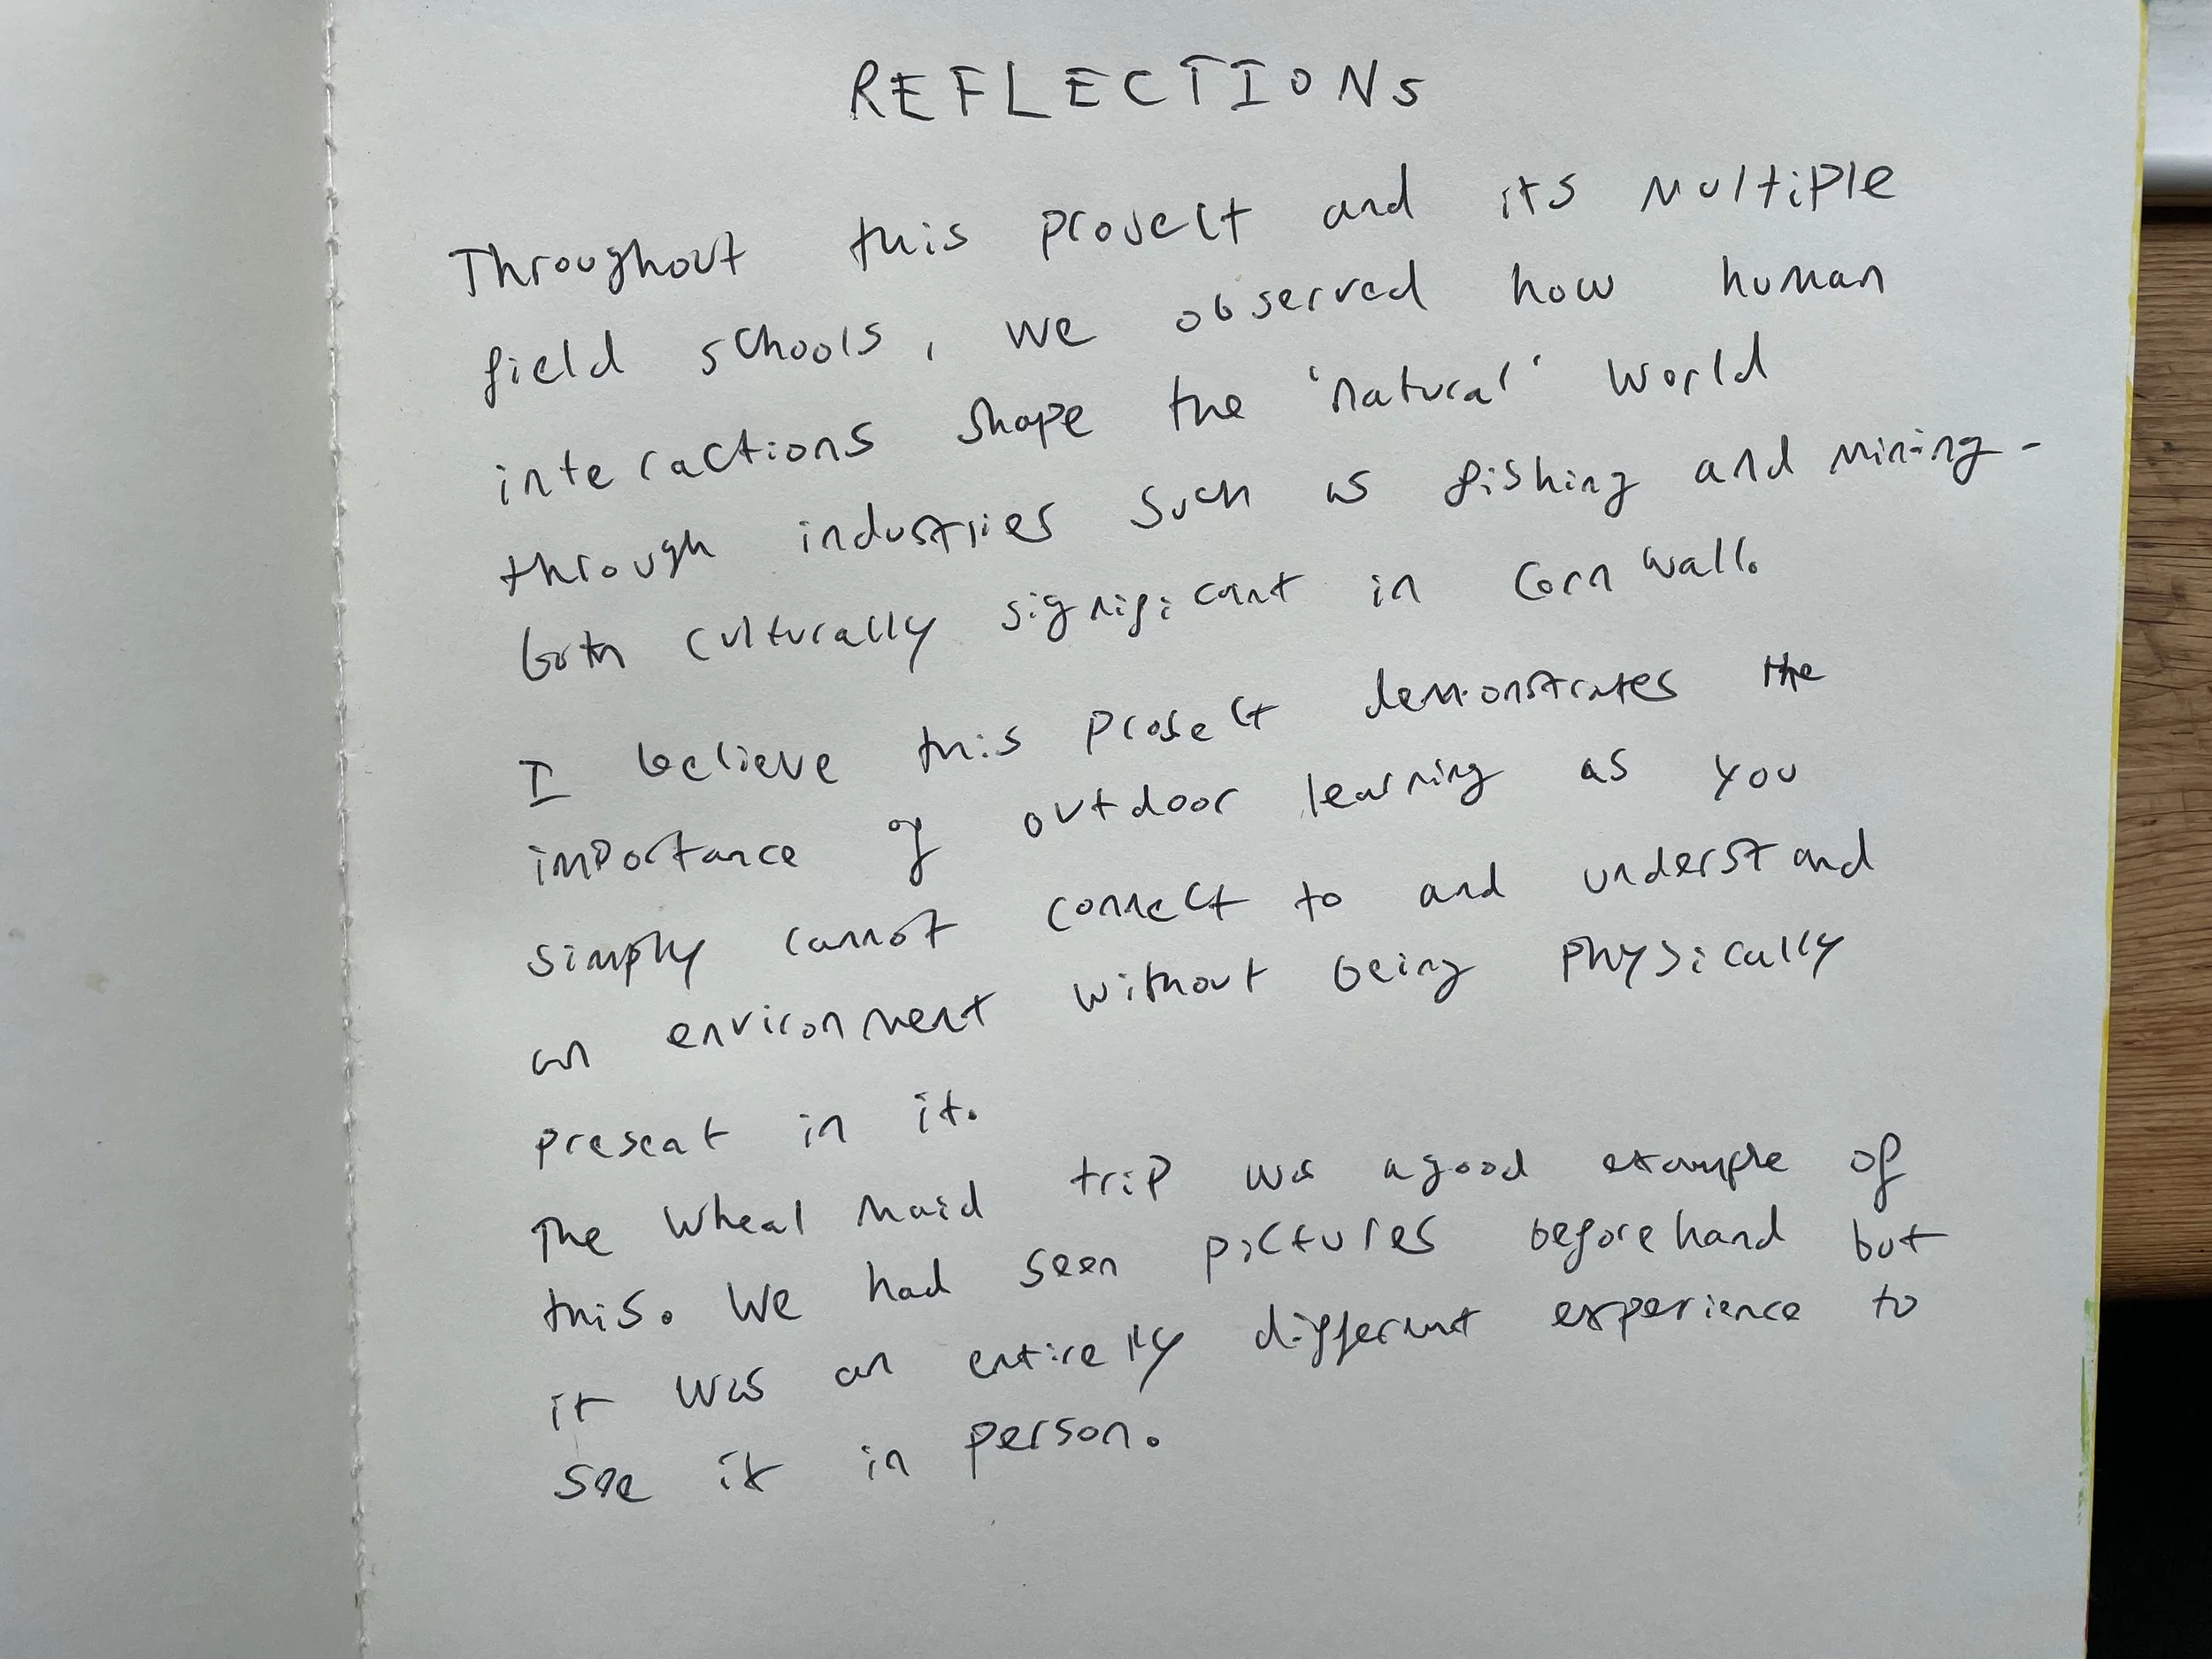 REFLECTIONS
Throughout this project and its multiple
field schools, we observed how human
interactions shape the 'natural' world
through industries such as fishing and mining -
both culturally significant in Cornwall.
I believe this project demonstrates the
importance of outdoor learning as you
simply cannot connect to and understand
an environment without being physically
present in it.
The Wheal Maid trip was a good example of
this. We had seen pictures beforehand but
it was an entirely different experience to
see it in person.